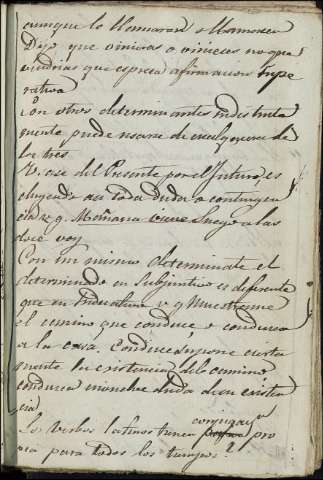 aunque lo llamaran o llamasen
Dijo que viniera o viniese no que
vendrias que espresa afirmacion impe
rativa
Con otros determinantes indistinta
mente puede usarse de cualquiera de
los tres
V, ase del Presente por el futuro, es
cluyendo asi toda duda o contingen
cia v g. Mañana Luego a las
doce voy
Con un mismo determinante el
determinado en Subjuntivo es diferente
que en Indicativo v g Muestreme
el camino que conduce o conduzca
a la casa. Conduce supone cierta
mente la existencia del camino
conduzca duda de su existen
cia
Los verbos latinos tienen conjugacn pro
pia para todos los tiempos